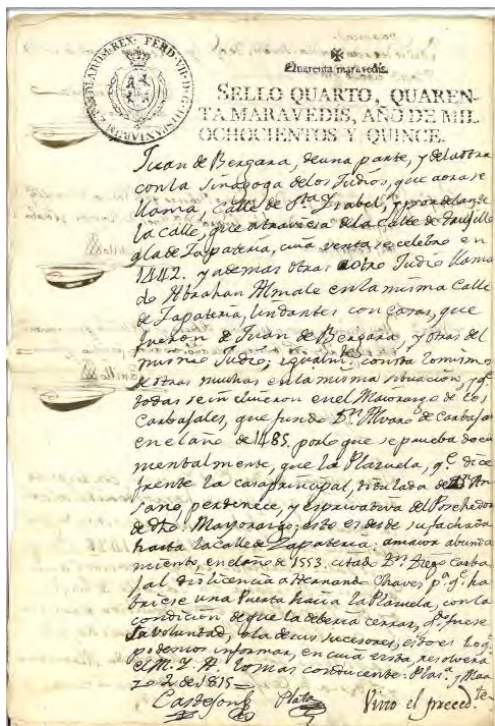 FERD. VII. D. G. HISPANIARUM. REX.
Quarenta maravedis.
SELLO QUARTO, QUAREN-
TA MARAVEDIS, AÑO DE MIL
OCHOCIENTOS Y QUINCE.
Juan de Bergara, de una parte, y de la otra
con la Sinagoga de los Judios, que aora se
llama, Calle de Sta. Ysabel, y por delante
la calle, que atraviesa de la Calle de Trugillo
a la de Zapateria, cuia venta se celebro en
1442. y ademas otras a otro Judio llama
do Abrahan Almale en la misma Calle
de Zapateria, lindantes con casas, que
fueron de Juan de Bergara, y otras del
mismo Judio; igualmte. consta lo mismo
de otras muchas en la misma situacion, y qe.
todas se incluieron en el Maiorazgo de los
Carbajales, que fundo Dn. Alvaro de Carbajal
en el año de 1485. por lo que se prueba docu
mentalmente, que la Plazuela, qe. dice
frente la casa principal, titulada de
pertenece, y es privativa del Posehedor
de dho. Mayorazgo; esto es desde su fachada
hasta la calle de Zapateria: a maior abunda
miento, en el año de 1553. citado Dn. Diego Carba
jal dio licencia a Hernando Chaves pa. qe. ha
briese una Puerta hacia la Plazuela, con la
condicion de que la deberia cerrar, qdo. fuese
su voluntad, o la de sus sucesores; esto es lo qe.
podemos informar, en cuia vista, resolvera
el M. Y. A. lo mas conducente. Plasa. y Mar
zo 2 de 1815
Plata
Vino el preced.te